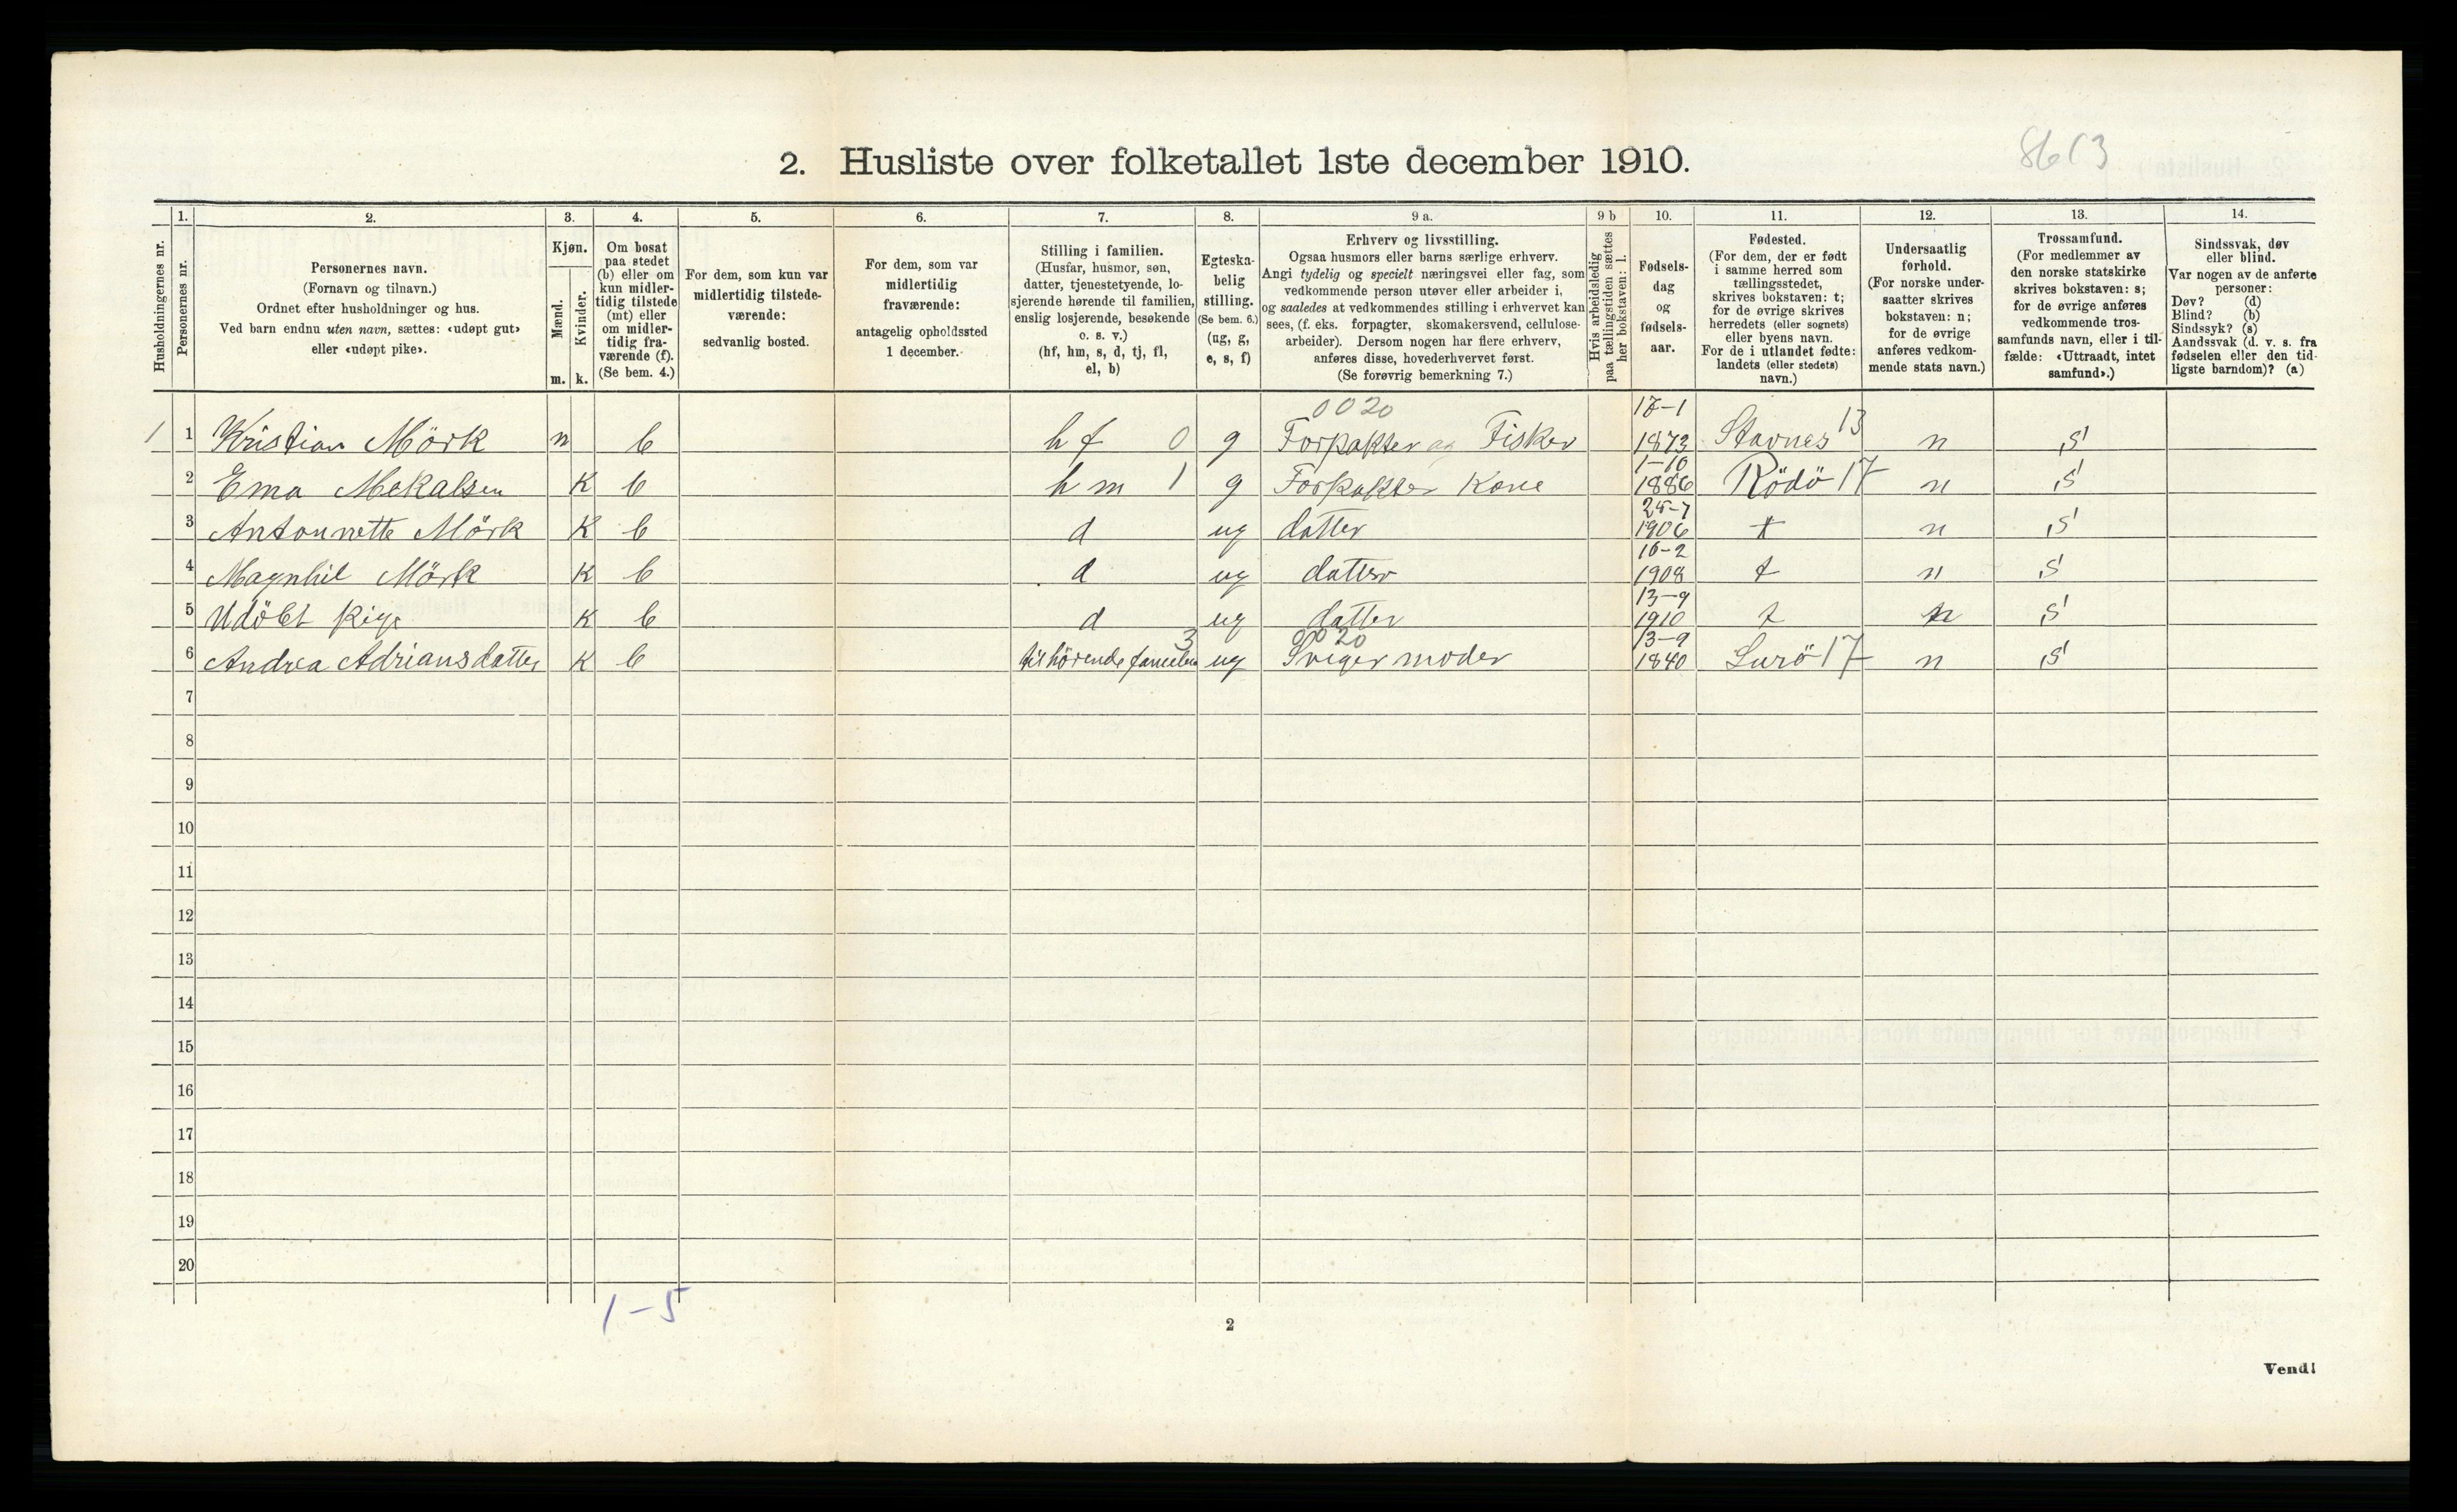 8613
2. Husliste over folketallet 1ste december 1910.
Husholdningernes nr.
1.
Personernes nr.
2.
Personernes navn.
(Fornavn og tilnavn.)
Ordnet efter husholdninger og hus.
Ved barn endnu uten navn, sættes: «udøpt gut»
eller «udøpt pike».
3.
Kjøn.
Mænd.
Kvinder.
m. k.
4.
Om bosat
paa stedet
(b) eller om
kun midler-
tidig tilstede
(mt) eller
om midler-
tidig fra-
værende (f).
(Se bem. 4.)
5.
For dem, som kun var
midlertidig tilstede-
værende:
sedvanlig bosted.
6.
For dem, som var
midlertidig
fraværende:
antagelig opholdssted
1 december.
7.
Stilling i familien.
(Husfar, husmor, søn,
datter, tjenestetyende, lo-
sjerende hørende til familien,
enslig losjerende, besøkende
o. s. v.)
(hf, hm, s, d, tj, fl,
el, b)
8.
Egteska-
belig
stilling.
(Se bem. 6.)
(ug, g,
e, s, f)
9 a.
Erhverv og livsstilling.
Ogsaa husmors eller barns særlige erhverv.
Angi tydelig og specielt næringsvei eller fag, som
vedkommende person utøver eller arbeider i,
og saaledes at vedkommendes stilling i erhvervet kan
sees, (f. eks. forpagter, skomakersvend, cellulose-
arbeider). Dersom nogen har flere erhverv,
anføres disse, hovederhvervet først.
(Se forøvrig bemerkning 7.)
9 b
Hvis arbeidsledig
paa tællingstiden sættes
her bokstaven: l.
10.
Fødsels-
dag
og
fødsels-
aar.
11.
Fødested.
(For dem, der er født
i samme herred som
tællingsstedet,
skrives bokstaven: t;
for de øvrige skrives
herredets (eller sognets)
eller byens navn.
For de i utlandet fødte:
landets (eller stedets)
navn.)
12.
Undersaatlig
forhold.
(For norske under-
saatter skrives
bokstaven: n;
for de øvrige
anføres vedkom-
mende stats navn.)
13.
Trossamfund.
(For medlemmer av
den norske statskirke
skrives bokstaven: s;
for de øvrige anføres
vedkommende tros-
samfunds navn, eller i til-
fælde: «Uttraadt, intet
samfund».)
14.
Sindssvak, døv
eller blind.
Var nogen av de anførte
personer:
Døv? (d)
Blind? (b)
Sindssyk? (s)
Aandssvak (d. v. s. fra
fødselen eller den tid-
ligste barndom)? (a)
0020 17-1
1 1 Kristian Mörk m b hf 0 g Forpakter og Fisker 1873 Stavnes 13 n s
1-10
2 Ema Mekalsen K b hm 1 g Forpakter Kone 1886 Rödö 17 n s
25-7
3 Antonnette Mörk K b d ug datter 1906 t n s
16-2
4 Magnhil Mörk K b d ug datter 1908 t n s
13-9
5 Udöbt Pige K b d ug datter 1910 t n s
3 0020 13-9
6 Andrea Adriansdatter K b tilhörende familien ug Svigermoder 1840 Lurö 17 n s
7
8
9
10
11
12
13
14
15
16
17
18
19
20
1-5
2
Vend!